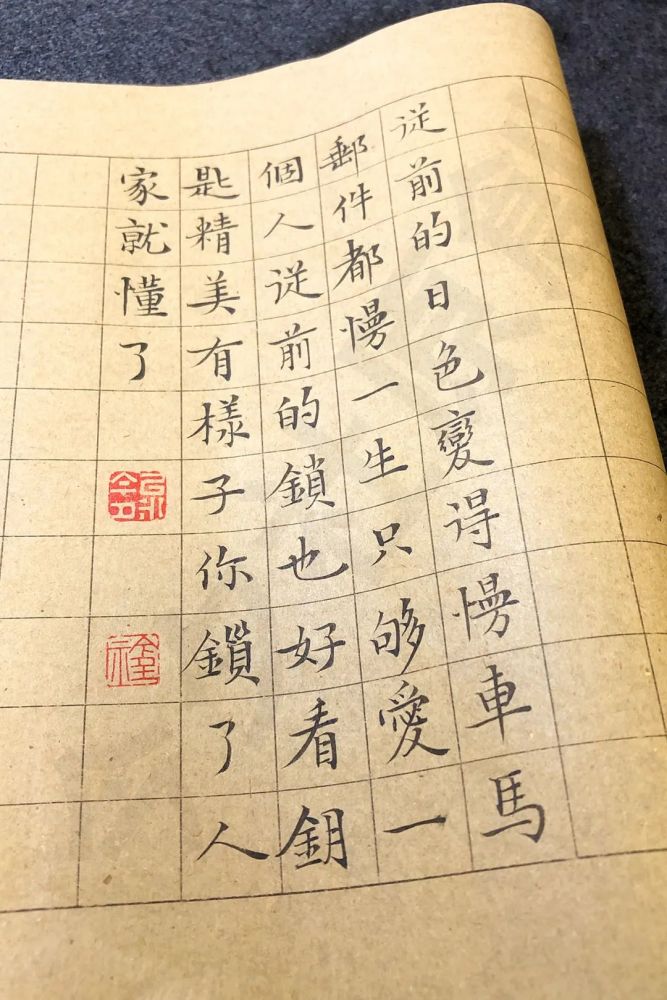 從前的日色變得慢車馬
郵件都慢一生只够愛一
個人從前的鎖也好看鑰
匙精美有樣子你鎖了人
家就懂了